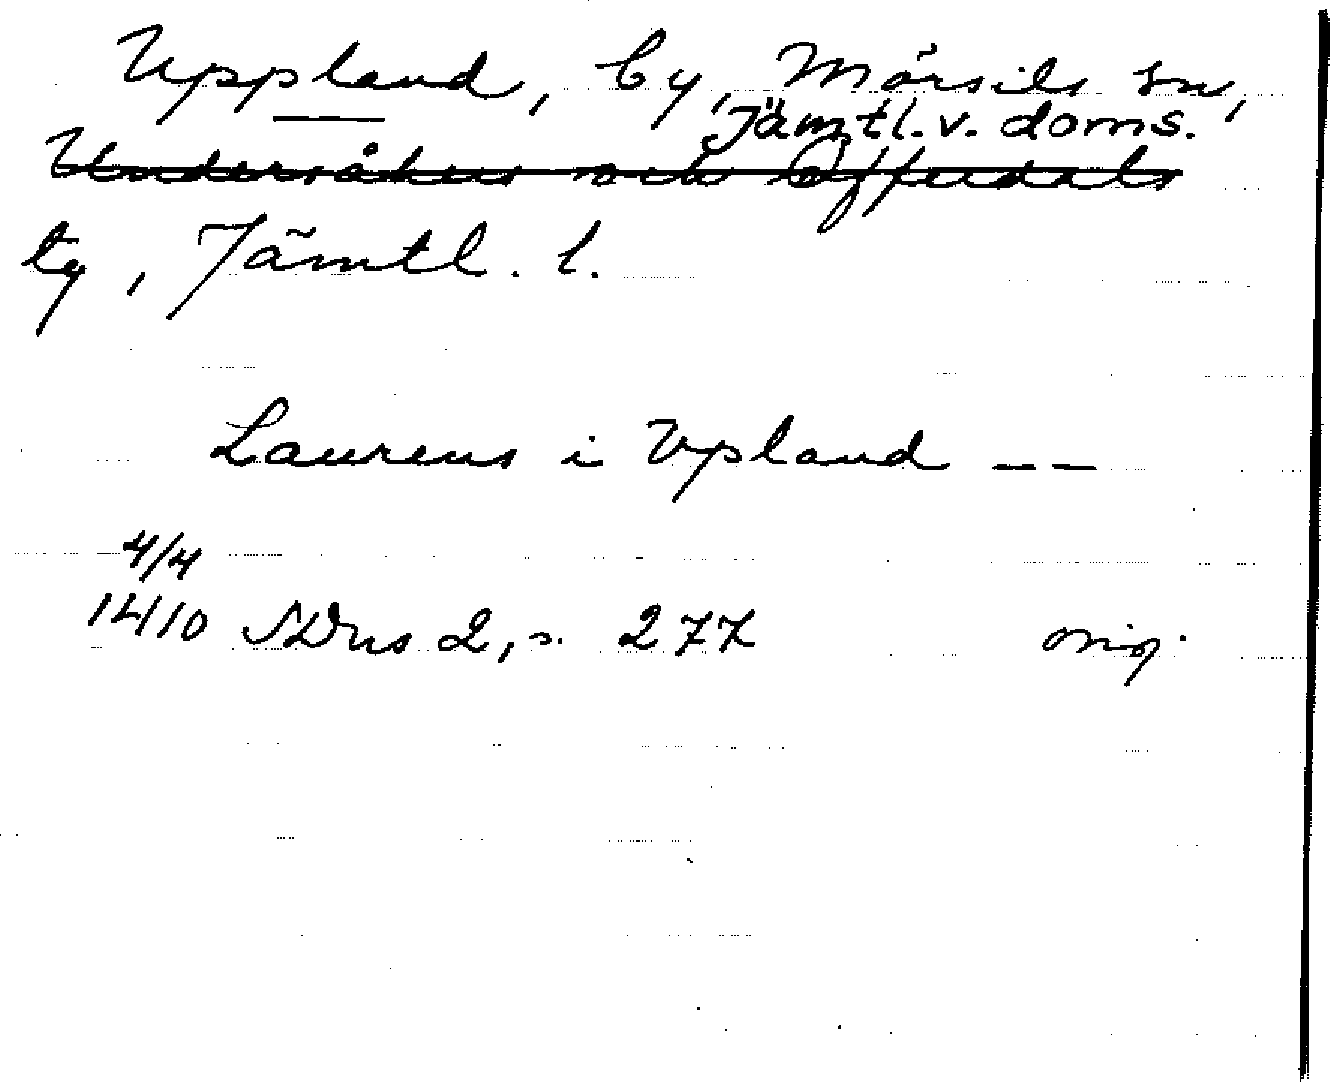 Uppland, by, Mörsils sn,
Jämtl. v. doms.
Undersåkers och Offerdals
tg, Jämtl. l.
Laurens i Vpland – –
4/4
1410 SDns 2, s. 277 orig.